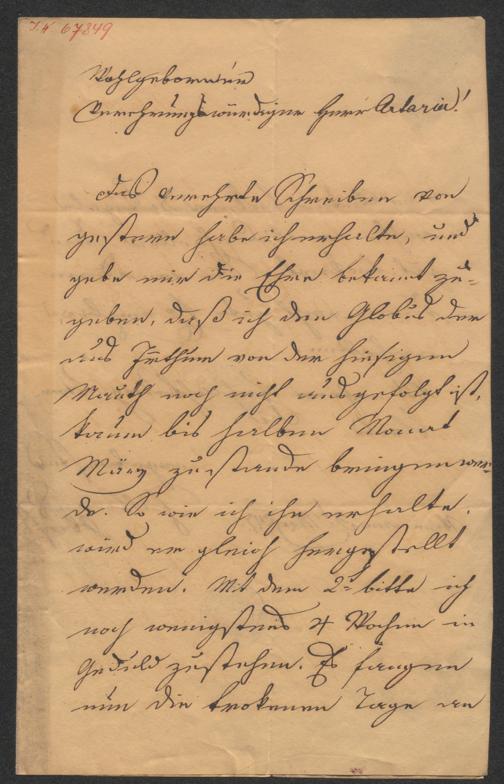 I.N. 67849
Wohlgeborner
Verehrungswürdiger Herr Artaria!
Das verehrte Schreiben von
gestern habe ich erhalte, und
gebe mir die Ehre bekannt zu-
geben, daß ich den Globus der
aus Irthum von der hiesigen
Mauth noch nicht ausgefolgt ist,
kaum bis halben Monat
März zustande bringen wer-
de. So wie ich ihn erhalte,
wird er gleich hergestellt
werden. Mit dem 2t bitte ich
noch wenigstens 4 Wochen in
Geduld zustehen. Es fangen
nun die trokenen Tage an